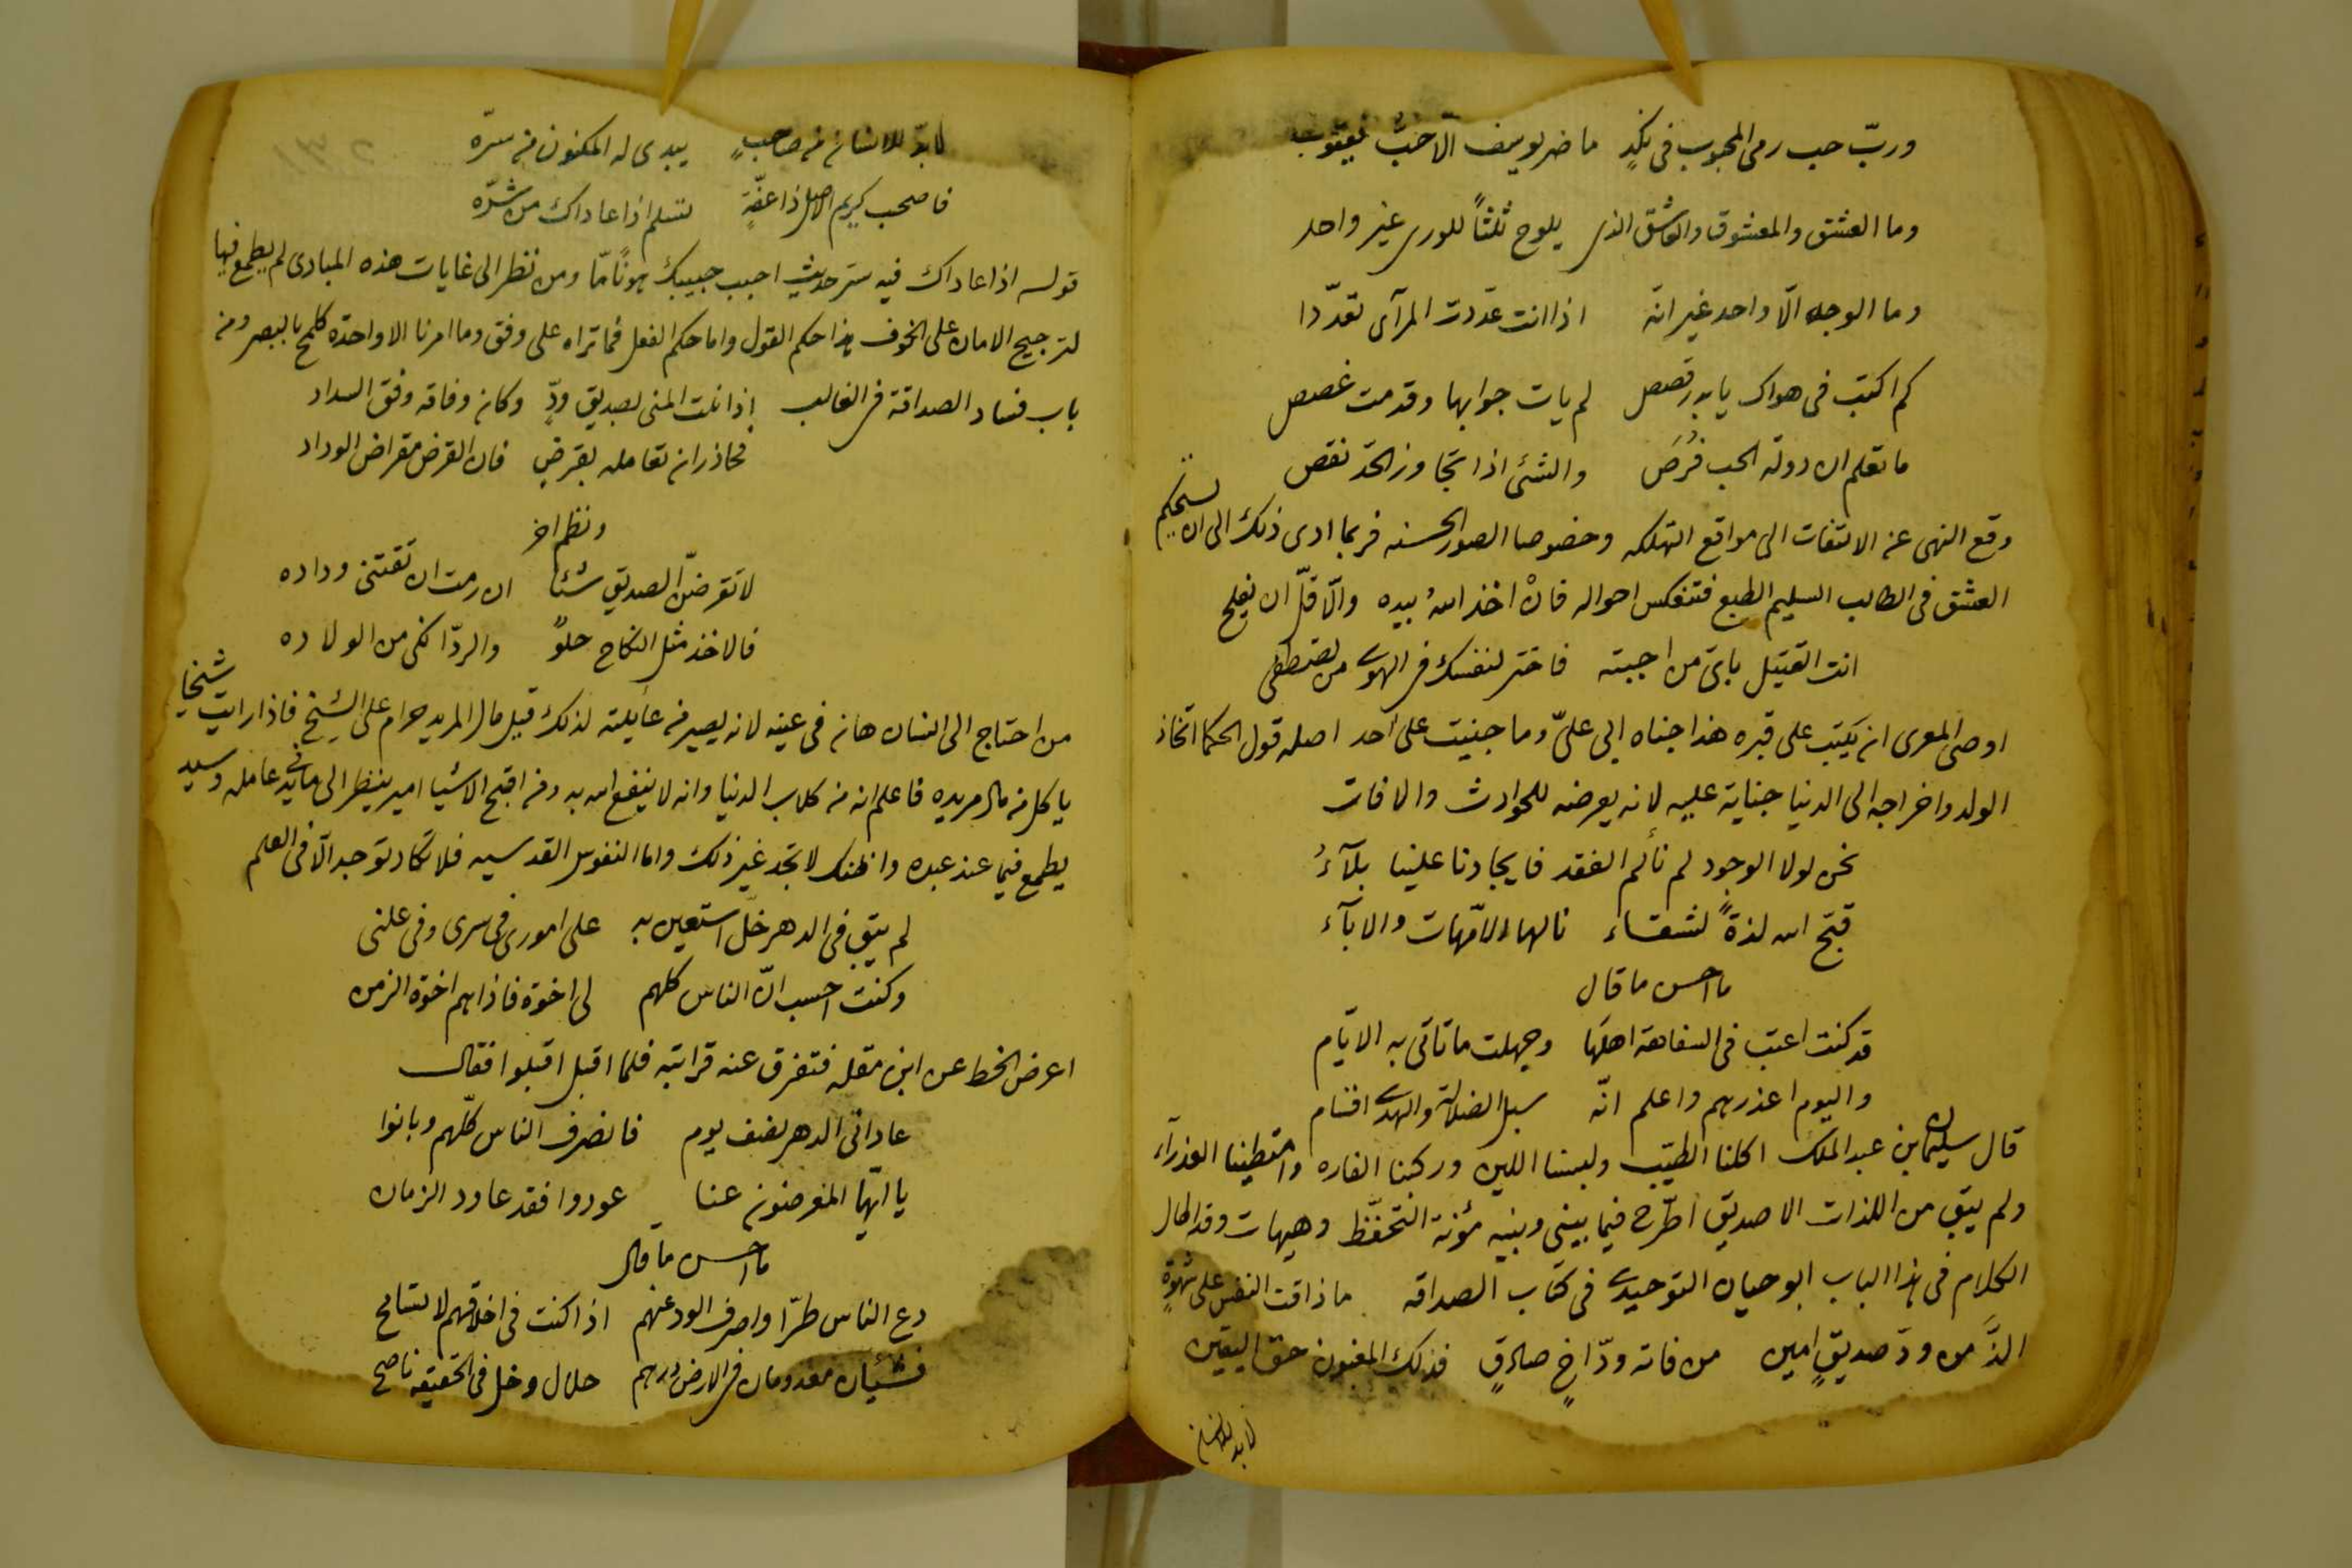 وربّ حب رمى المحبوب فى نكدٍ ما ضر يوسف الّا حبُّ يعقوب
وما العشق والمعشوق والعاشق الذى يلوح ثلثاً للورى غير واحد
وما الوجه الّا واحد غير انّه اذا انت عدّدت المرآى تعدّدا
كم اكتب فى هواك يا بدر قصص لم يات جوابها وقد مت غصص
ما تعلم ان دولة الحب فُرَص والشئ اذا تجاوز الحد نقص
وقع النهى عن الالتفات الى مواقع التهلكه وخصوصا الصور الحسنه فربما ادى ذلك الى ان يستحكم
العشق فى الطالب السليم الطبع فتنعكس احواله فانْ اخذ اللهُ بيده والّا قلّ ان يفلح
انت القتيل باىّ من احببته فاختر لنفسك فى الهوى من تصطفى
اوصى المعرى ان يكتب على قبره هذا جناه ابى علىّ وما جنيت على احد اصله قول الحكما اتخاذ
الولد واخراجه الى الدنيا جناية عليه لانه يعرضه للحوادث والافات
نحن لولا الوجود لم نألم الفقد فايجادنا علينا بلآءُ
قبّح الله لذةً لشقاء نالها الامّهات والابآء
ما احسن ما قال
قد كنت اعتب فى السفاهة اهلَها وجهلت ما تاتى به الايّام
واليوم اعذرهم واعلم انّه سبل الضلالة والهدى اقسام
قال سليمان بن عبد الملك اكلنا الطيّب ولبسنا اللين وركبنا الفاره وامتطينا العذرآء
ولم يبق من اللذات الا صديق اطّرح فيما بينى وبينه مؤنة التحفّظ وهيهات وقد اطال
الكلام فى هذا الباب ابو حيان التوحيدى فى كتاب الصداقه ما ذاقت النفس على شهوةٍ
الذَّ من ودّ صديقٍ امين من فاته ودّ اخٍ صادقٍ فذلك المغبون حق اليقين
لابد للانسان
لابدّ للانسان من صاحبٍ يبدى له المكنون من سرّه
فاصحب كريم الاصل ذا عفّةٍ تسلم اذا عاداك من شرّه
قوله اذا عاداك فيه سرّ حديث احبب حبيبك هونًا مّا ومن نظر الى غايات هذه المبادى لم يطمع فيها
لترجيح الامان على الخوف هذا حكم القول واما حكم الفعل فما تراه على وفق وما امرنا الا واحدة كلمح بالبصر ومن
باب فساد الصداقة فى الغالب اذا نلت المنى بصديق ودٍّ وكان وفاقه وفق السداد
فحاذر ان تعامله بقرضٍ فان القرض مقراض الوداد
ونظم اخر
لا تقرضنّ الصديق شيئا ان رمت ان تقتنى وداده
فالاخذ مثل النكاح حلوٌ والردّ انكى من الولاده
من احتاج الى انسان هان فى عينه لانه يصير من عايلته لذلك قيل مال المريد حرام على الشيخ فاذا رايت شيخا
ياكل من مال مريده فاعلم انه من كلاب الدنيا وانه لا ينفع الله به ومن اقبح الاشيا امير ينظر الى ما فى يد عامله وسيد
يطمع فيما عند عبده واظنك لا تجد غير ذلك واما النفوس القدسيه فلا تكاد توجد الّا فى العلم
لم يبق فى الدهر خلّ استعين به على امورى فى سرى وفى علنى
وكنت احسب انّ الناس كلهم لى اخوة فاذا هم اخوة الزمن
اعرض الخط عن ابن مقله فتفرق عنه قرابته فلما اقبل اقبلوا فقال
عادانى الدهر نصف يوم فانصرف الناس كلّهم وبانوا
يا ايّها المعرضون عنا عودوا فقد عاود الزمان
ما احسن ما قال
دع الناس طرّا واصرف الود عنهم اذا كنت فى اخلاقهم لا تسامح
فشيئان معدومان فى الارض درهم حلال وخل فى الحقيقه ناصح